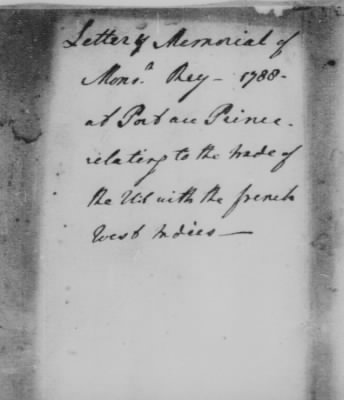 Letter & Memorial of
Monsr. Rey - 1788 -
at Port au Prince.
relating to the trade of
the US with the french
West Indies -